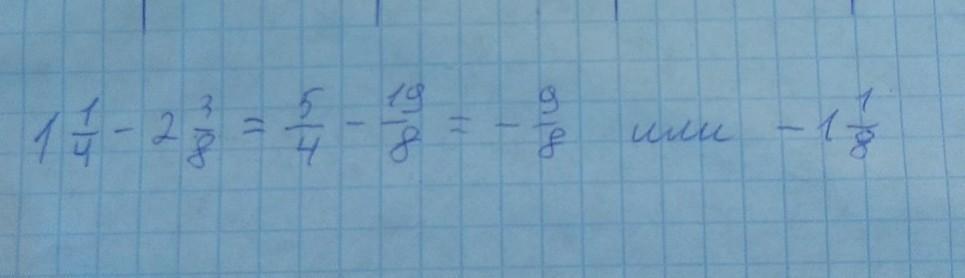 1 1/4 - 2 3/8 = 5/4 - 19/8 = - 9/8 или - 1 1/8